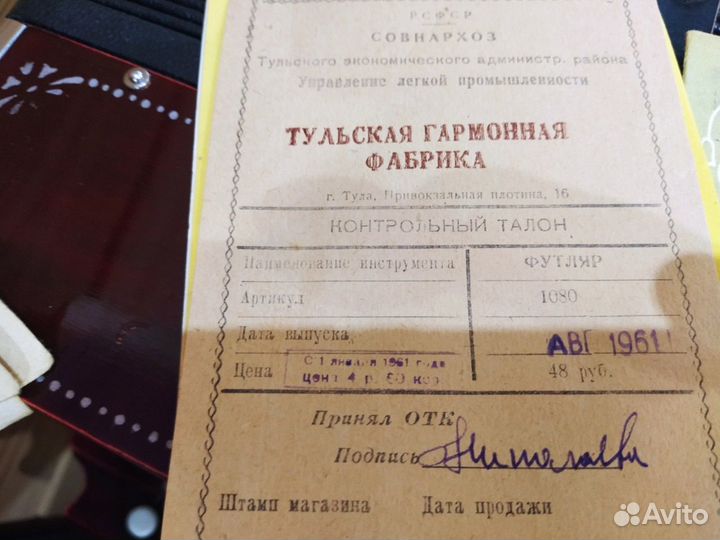 РСФСР
СОВНАРХОЗ
Тульского экономического администр. района
Управление легкой промышленности
ТУЛЬСКАЯ ГАРМОННАЯ
ФАБРИКА
г. Тула, Привокзальная плотина, 16
КОНТРОЛЬНЫЙ ТАЛОН
Наименование инструмента ФУТЛЯР
Артикул 1080
Дата выпуска АВГ 1961
Цена С 1 января 1961 года 48 руб.
цена 4 р. 80 коп
Принял ОТК
Подпись
Штамп магазина Дата продажи
Avito